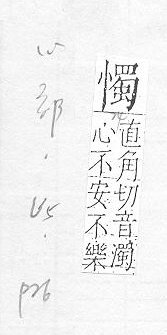 直角切音濁
心不安不樂
心部.
p26